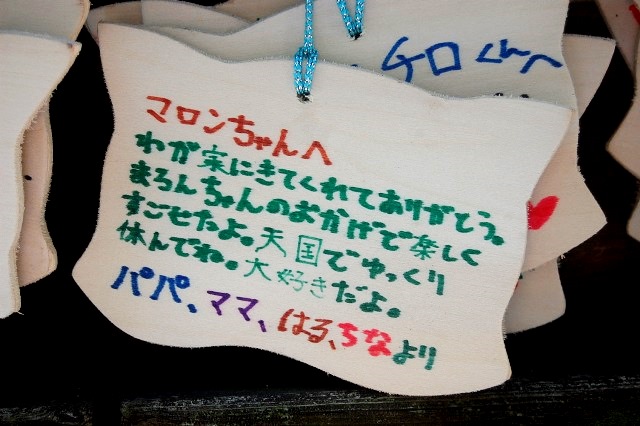 チロくんへ
マロンちゃんへ
わが家にきてくれてありがとう。
まろんちゃんのおかげで楽しく
すごせたよ。天国でゆっくり
休んでね。大好きだよ。
パパ、ママ、はる、ちなより